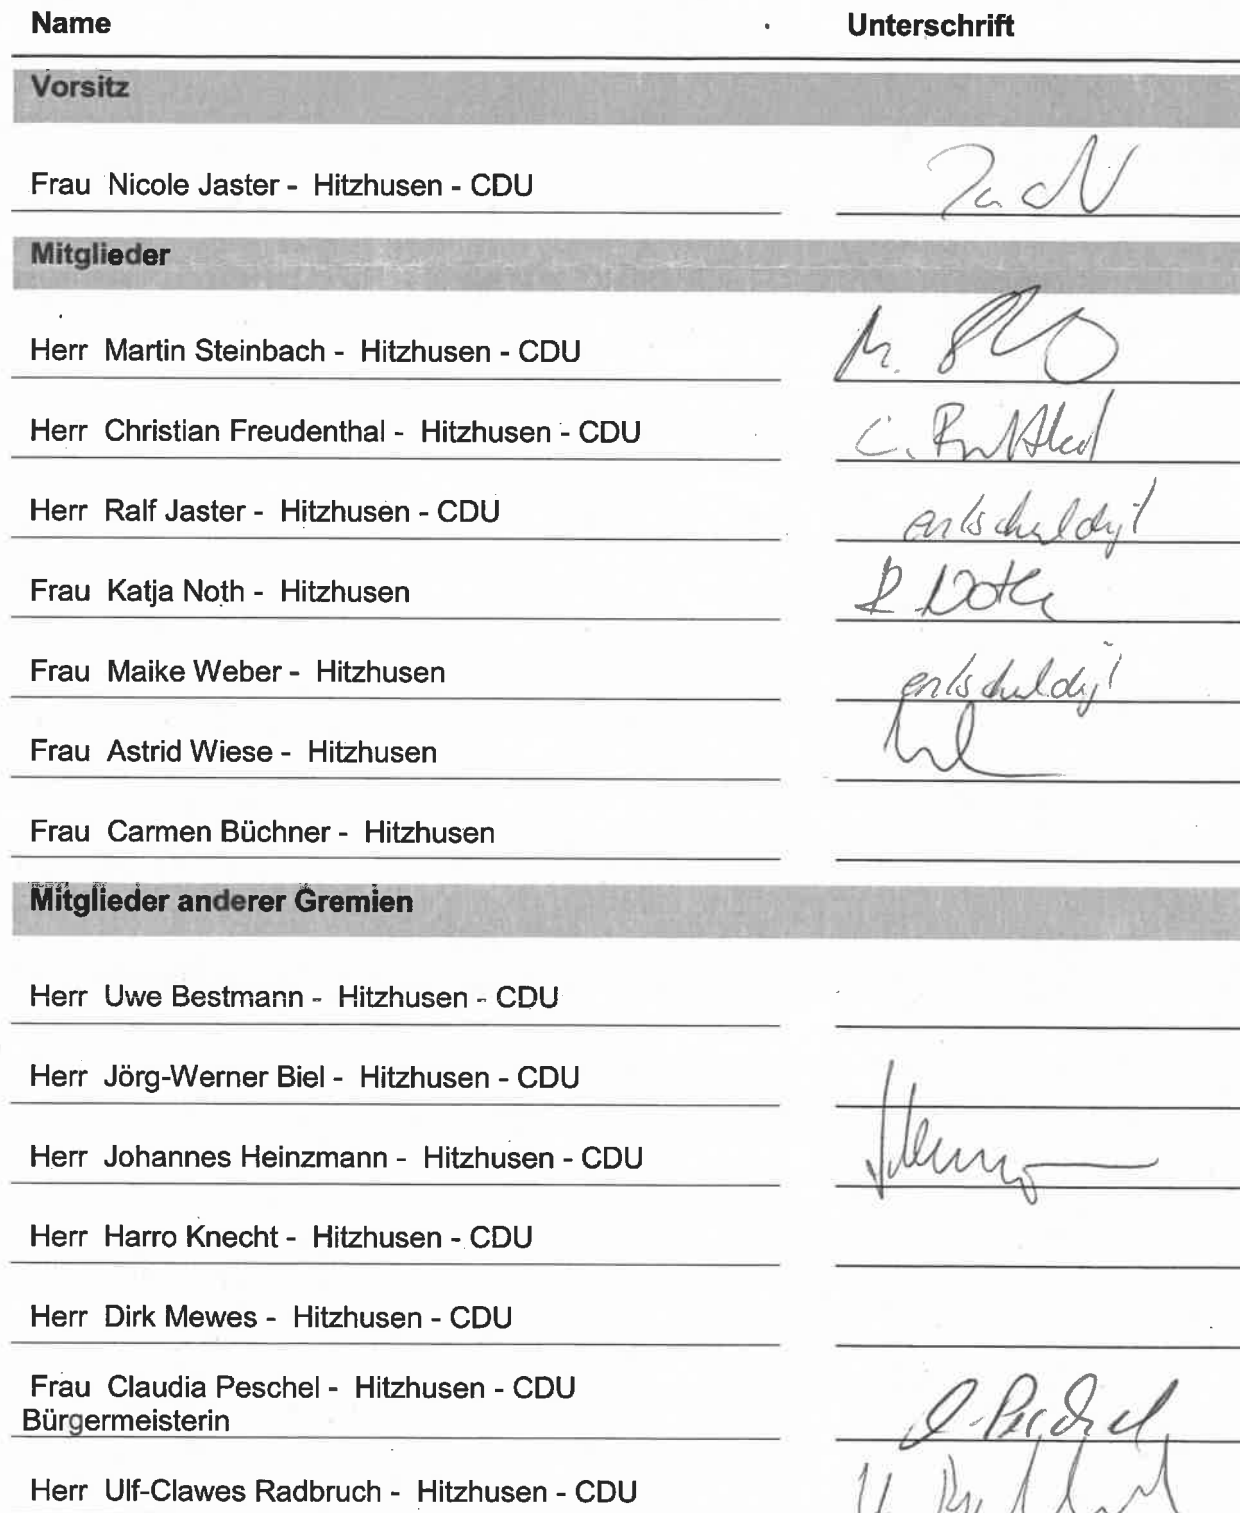 Name Unterschrift
Vorsitz
Frau Nicole Jaster - Hitzhusen - CDU
Mitglieder
Herr Martin Steinbach - Hitzhusen - CDU M.
Herr Christian Freudenthal - Hitzhusen - CDU C.
Herr Ralf Jaster - Hitzhusen - CDU entschuldigt
Frau Katja Noth - Hitzhusen K Noth
Frau Maike Weber - Hitzhusen entschuldigt
Frau Astrid Wiese - Hitzhusen
Frau Carmen Büchner - Hitzhusen
Mitglieder anderer Gremien
Herr Uwe Bestmann - Hitzhusen - CDU
Herr Jörg-Werner Biel - Hitzhusen - CDU
Herr Johannes Heinzmann - Hitzhusen - CDU
Herr Harro Knecht - Hitzhusen - CDU
Herr Dirk Mewes - Hitzhusen - CDU
Frau Claudia Peschel - Hitzhusen - CDU C. Peschel
Bürgermeisterin
Herr Ulf-Clawes Radbruch - Hitzhusen - CDU